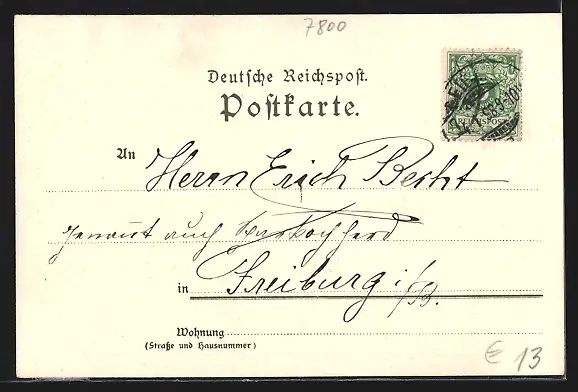 7800
Deutsche Reichspost.
Postkarte.
REICHSPOST
An Herrn Erich Becht
genannt auch Starkochherd
in Freiburg i/B.
Wohnung
(Straße und Hausnummer)
€ 13